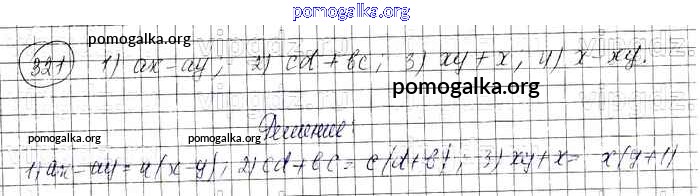 pomogalka.org
pomogalka.org
321 1) ax - ay; 2) cd + bc; 3) xy + x; 4) x - xy.
pomogalka.org
Решение:
pomogalka.org pomogalka.org pomogalka.org
1) ax - ay = a(x - y); 2) cd + bc = c(d + b); 3) xy + x = x(y + 1)